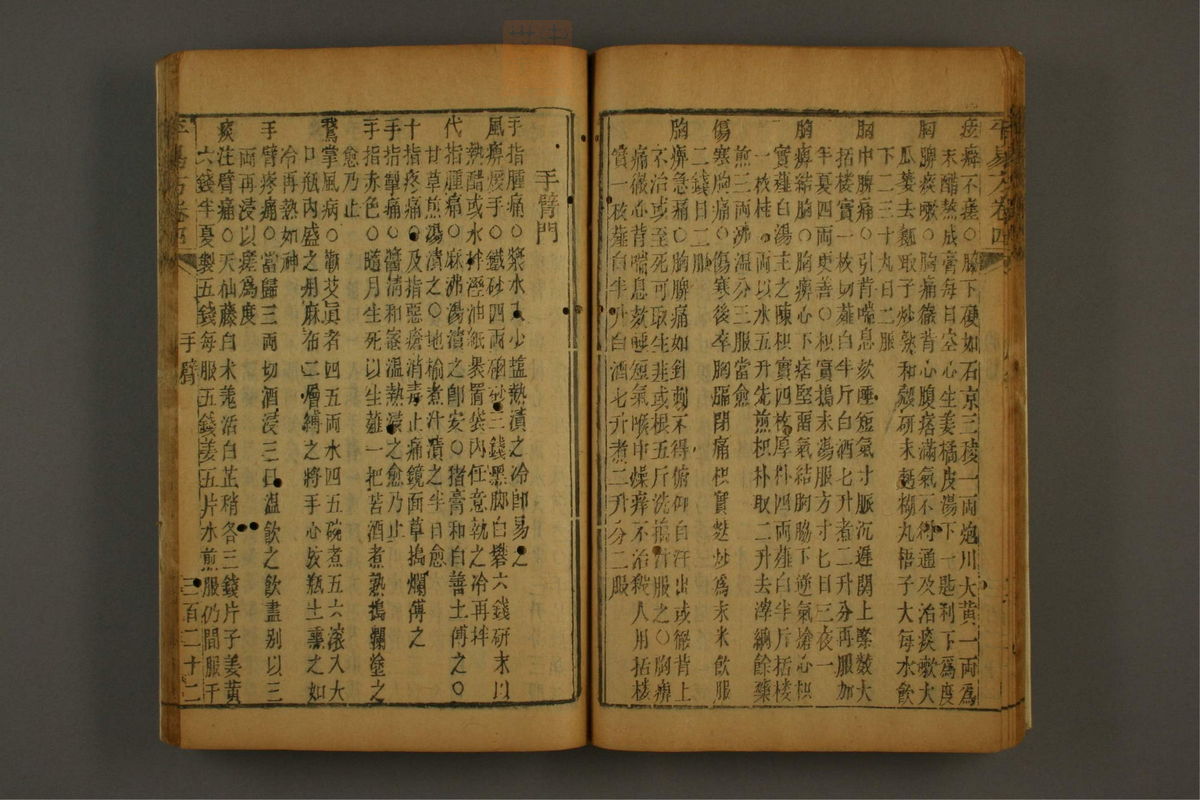 痃癖不瘥○脇下硬如石京三稜一兩炮川大黃一兩爲
末醋熬成膏每日空心生姜橘皮湯下一匙利下爲度
胸脾痰嗽○胸痛徹背心腹痞滿氣不得通及治痰嗽大
瓜蔞去穰取子炒熟和殼研末麪糊丸梧子大每水飲
下二三十丸日二服
胸中脾痛○引背喘息欬唾短氣寸脈沉遲關上緊數大
括樓實一枚切薤白半斤白酒七升煮二升分再服加
半夏四兩更善○枳實搗末湯服方寸匕日三夜一
胸痹結胸○胸痹心下痞堅留氣結胸脇下逆氣搶心枳
實薤白湯主之陳枳實四枚厚朴四兩薤白半斤括樓
一枚桂一兩以水五升先煎枳朴取二升去滓納餘藥
煎三兩沸溫分三服當愈
傷寒胸痛○傷寒後卒胸膈閉痛枳實麩炒爲末米飲服
二錢日二服
胸痹急痛○胸脾痛如針刺不得俯仰自汗出或徹背上
不治或至死可取生韭或根五斤洗搗汁服之○胸痹
痛徹心背喘息欬唾短氣喉中燥癢不治殺人用括樓
實一枚薤白半斤白酒七升煮二升分二服
手臂門
手指腫痛○漿水入少鹽熱漬之冷即易之
風痹瘈手○鐵砂四兩硇砂二錢黑腳白礬六錢研末以
熱醋或水拌溼油紙裹置袋內任意執之冷再拌
代指腫痛○麻沸湯漬之即安○猪膏和白善土傅之○
甘草煎湯漬之○地榆煮汁漬之半日愈
十指疼痛○及指惡瘡消毒止痛鏡面草搗爛傅之
手指掣痛○醬清和蜜溫熱浸之愈乃止
手指赤色○隨月生死以生薤一把苦酒煮熟搗爛塗之
愈乃止
鵞掌風病○蘄艾眞者四五兩水四五碗煮五六滾入大
口瓶內盛之用麻布二層縛之將手心放瓶上熏之如
冷再熱如神
手臂疼痛○當歸三兩切酒浸三日溫飲之飲盡別以三
兩再浸以瘥爲度
痰注臂痛○天仙藤白朮羗活白芷梢各三錢片子姜黃
六錢半夏製五錢每服五錢姜五片水煎服仍間服千
手臂
三百二十二